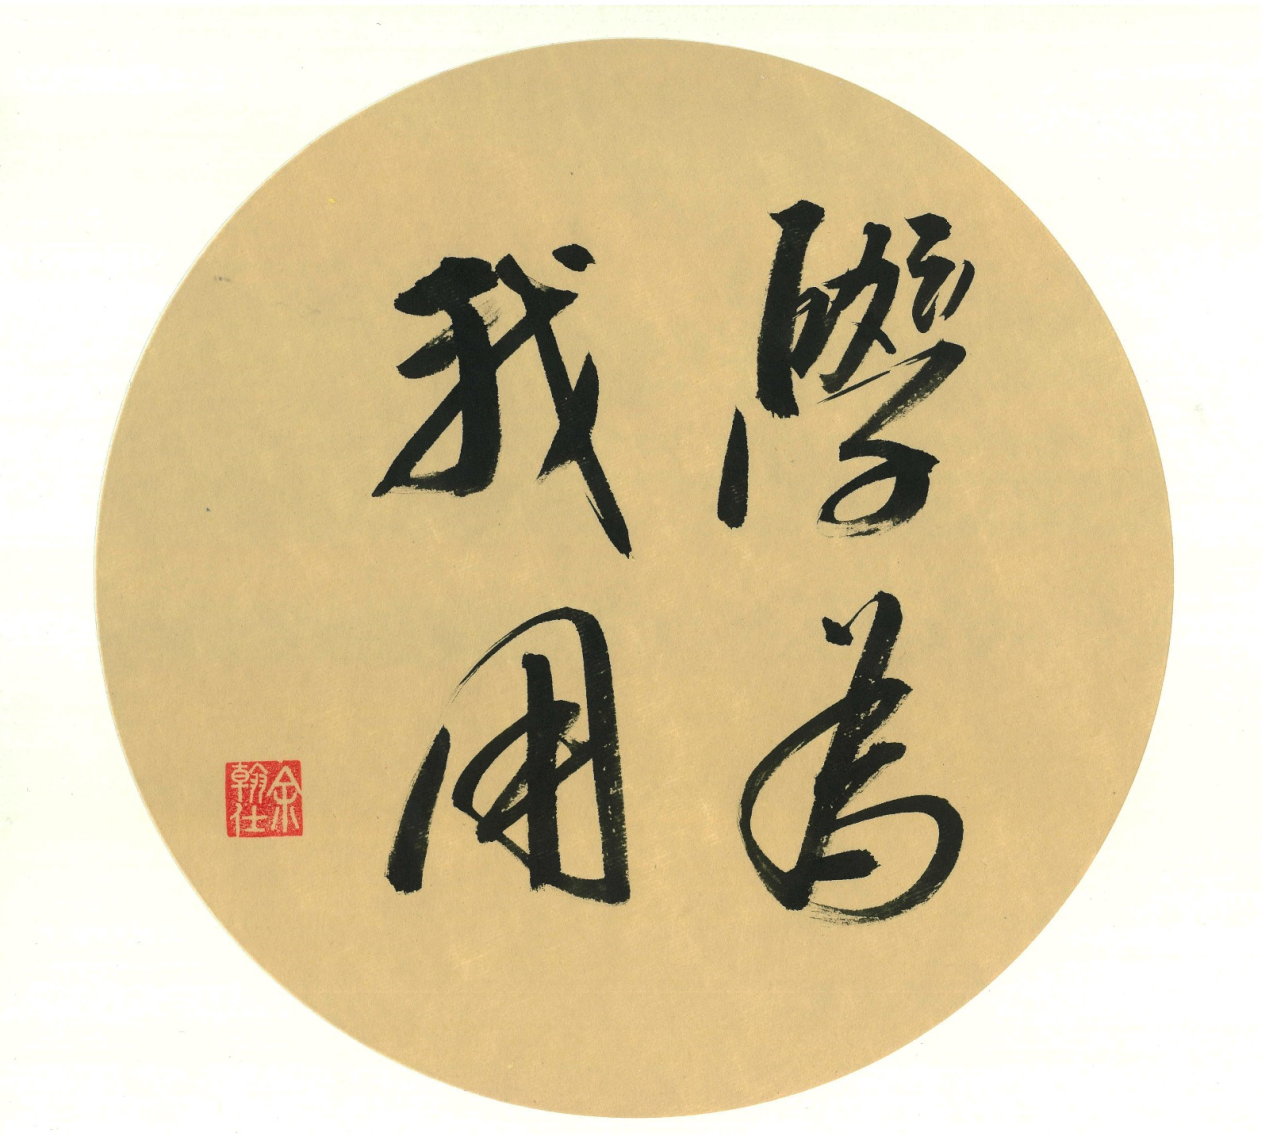 學為
我用
余翰仕